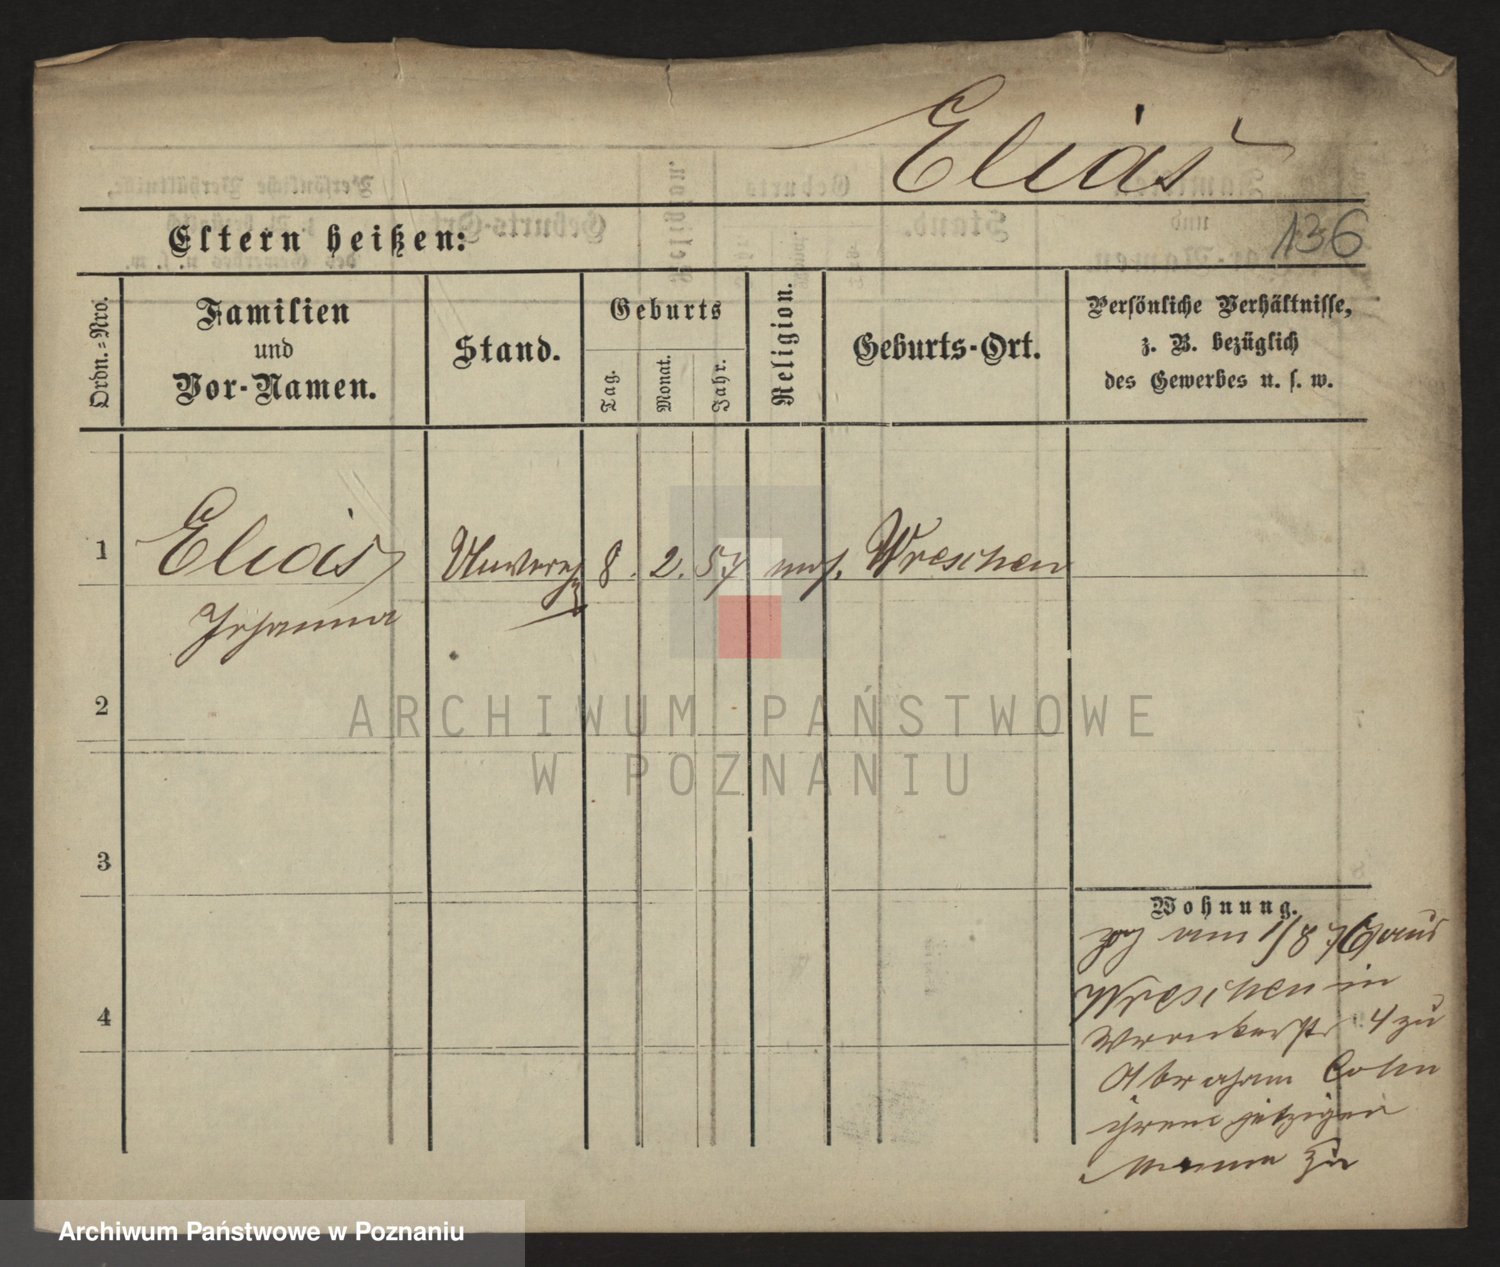 Elias
136
Eltern heißen:
Ordn.-Nro.
Familien
und
Vor-Namen.
Stand.
Geburts
Tag.
Monat.
Jahr.
Religion.
Geburts-Ort.
Persönliche Verhältnisse,
z. B. bezüglich
des Gewerbes u. s. w.
1 Elias Unvereh 8. 2. 57 mos. Wreschen
Johanna
2
3
4
Wohnung.
zog am 1/8 76 aus
Wreschen in
Wronkerstr 4 zu
Abraham Cohn
ihrem jetzigen
Manne zu
ARCHIWUM PAŃSTWOWE
W POZNANIU
Archiwum Państwowe w Poznaniu